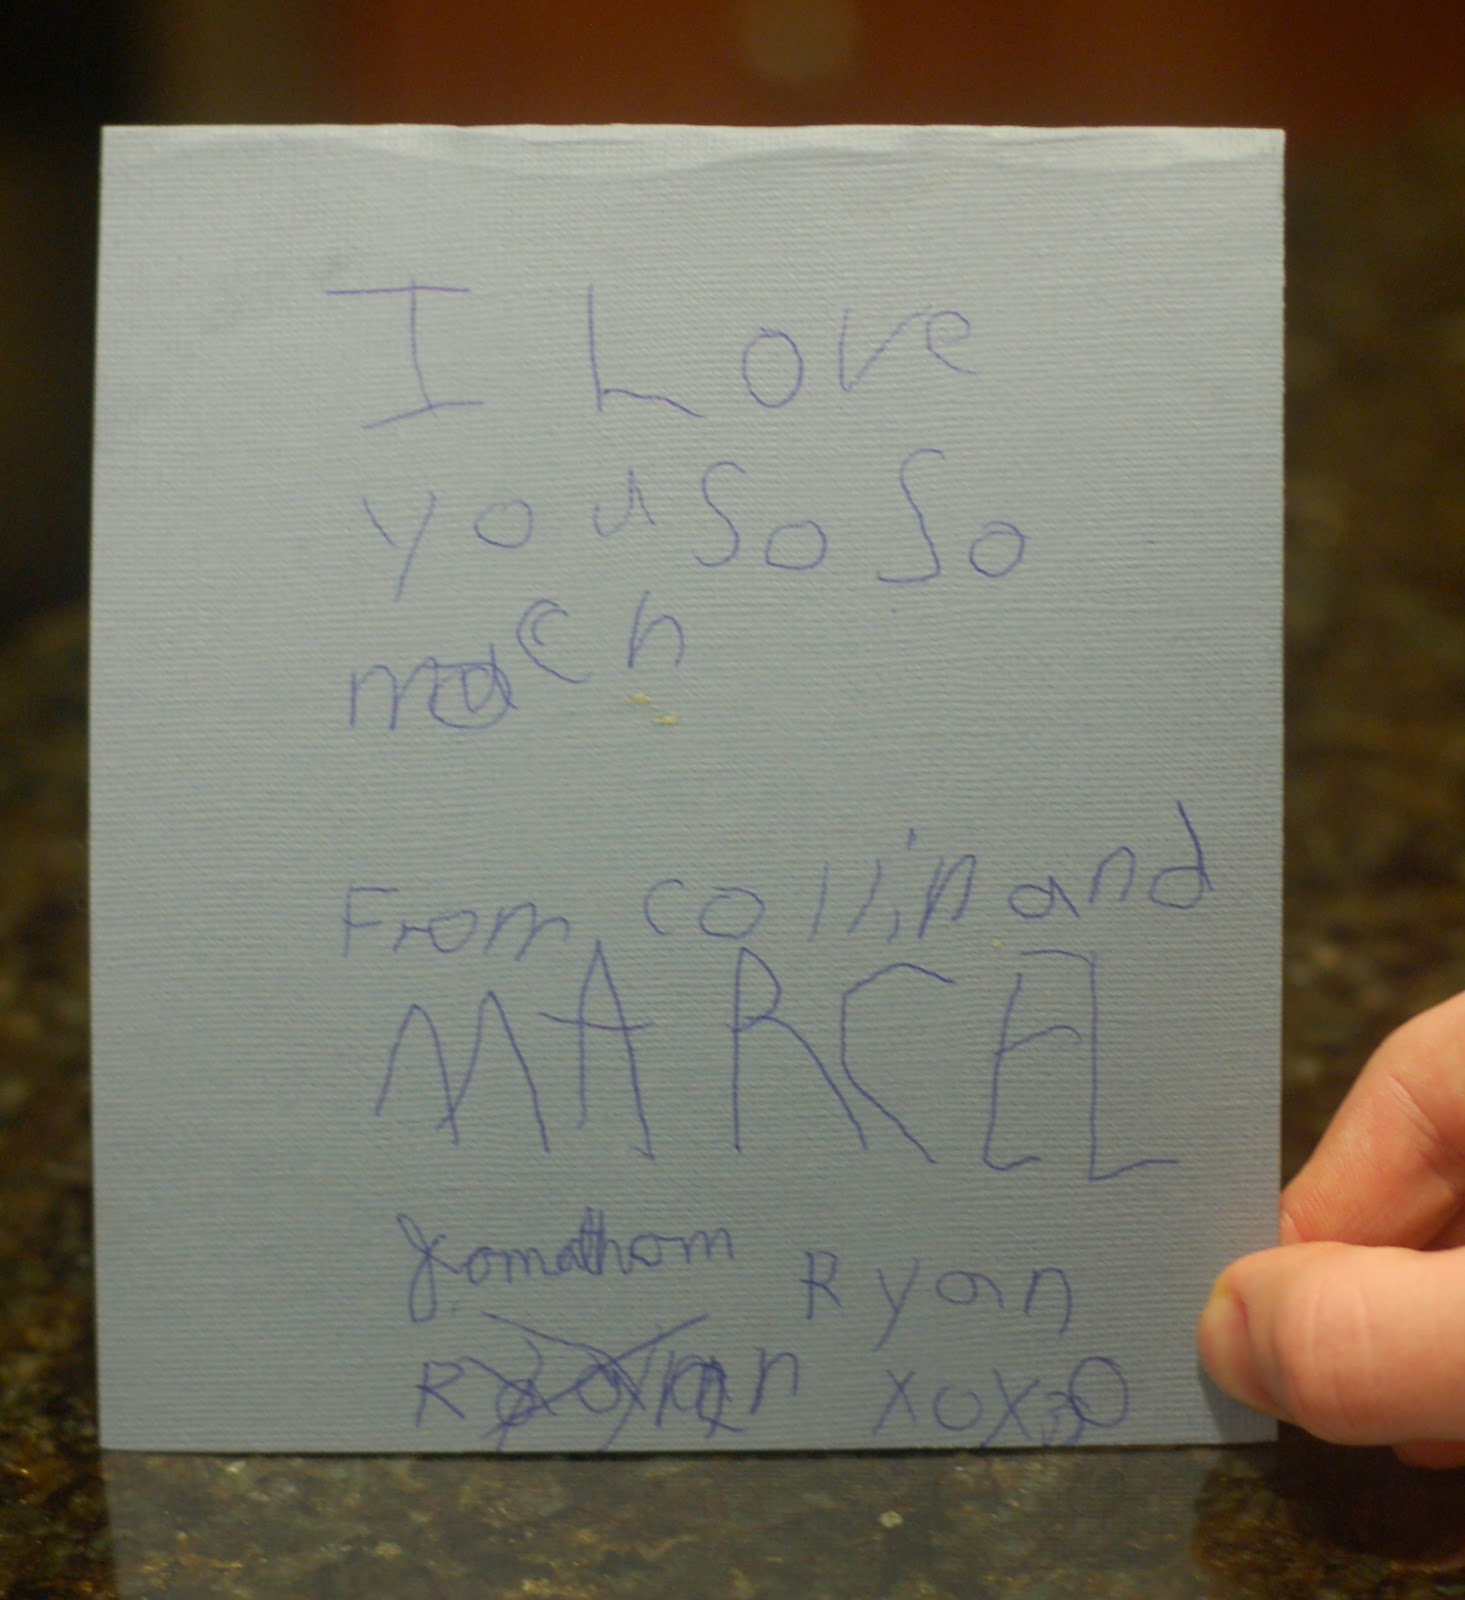 I Love
you So So
much
From collin and
MARCEL
Jonathan Ryan
xoxo